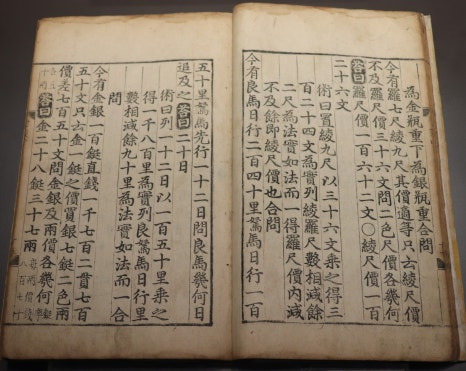 為金瓶重下為銀瓶重合問
今有羅七尺綾九尺其價適等只云綾尺價
不及羅尺價三十六文問二色尺價各幾何
答曰羅尺價一百六十二文○綾尺價一百
二十六文
術曰置綾九尺以三十六文乘之得三
百二十四文為實列綾羅尺數相減餘
二尺為法實如法而一得羅尺價內減
不及餘即綾尺價也合問
今有良馬日行二百四十里駑馬日行一百
五十里駑馬先行一十二日問良馬幾何日
追及之答曰二十日
術曰列一十二日以一百五十里乘之
得一千八百里為實列良駑馬日行里
數相減餘九十里為法實如法而一合
問
今有金銀一百鋌直錢一千七百二貫七百
五十文只云金一鋌之價買銀七鋌二色兩
價差七百五十文問金銀及兩價各幾何
答曰金二十八鋌三十七兩每兩價錢八百七十